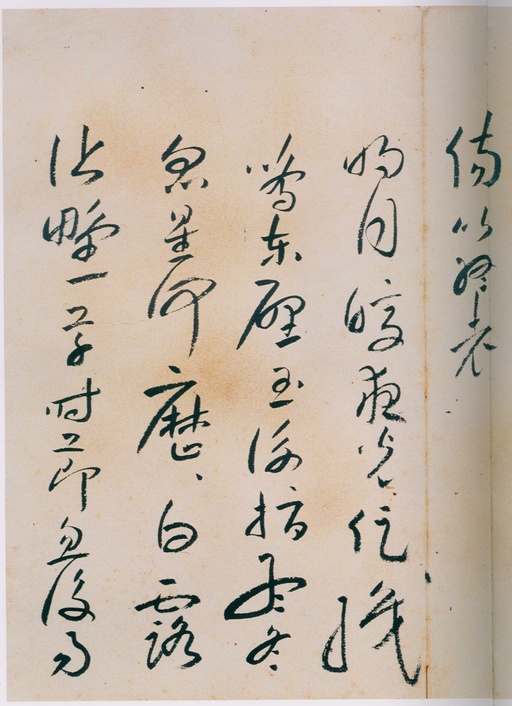 傷以終老
明月皎夜光促織
鳴東壁玉衡指孟冬
眾星何歷、白露
沾野草時節忽復易